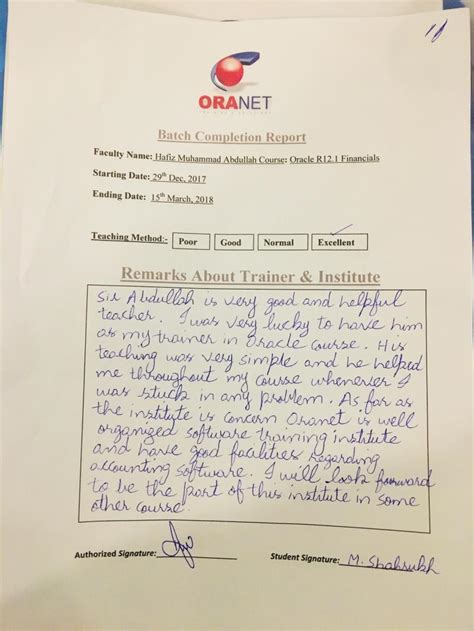 ORANET
Batch Completion Report
Faculty Name: Hafiz Muhammad Abdullah Course: Oracle R12.1 Financials
Starting Date: 29th Dec, 2017
Ending Date: 15th March, 2018
Teaching Method:- Poor Good Normal Excellent
Remarks About Trainer & Institute
Sir Abdullah is very good and helpful
teacher. I was very lucky to have him
as my trainer in Oracle course. His
teaching was very simple and he helped
me throughout my course whenever I
was stuck in any problem. As far as
the institute is concern Oranet is well
organized software training institute
and have good facilities regarding
accounting software. I will look forward
to be the part of this institute in some
other course.
Authorized Signature: Student Signature: M. Shahrukh